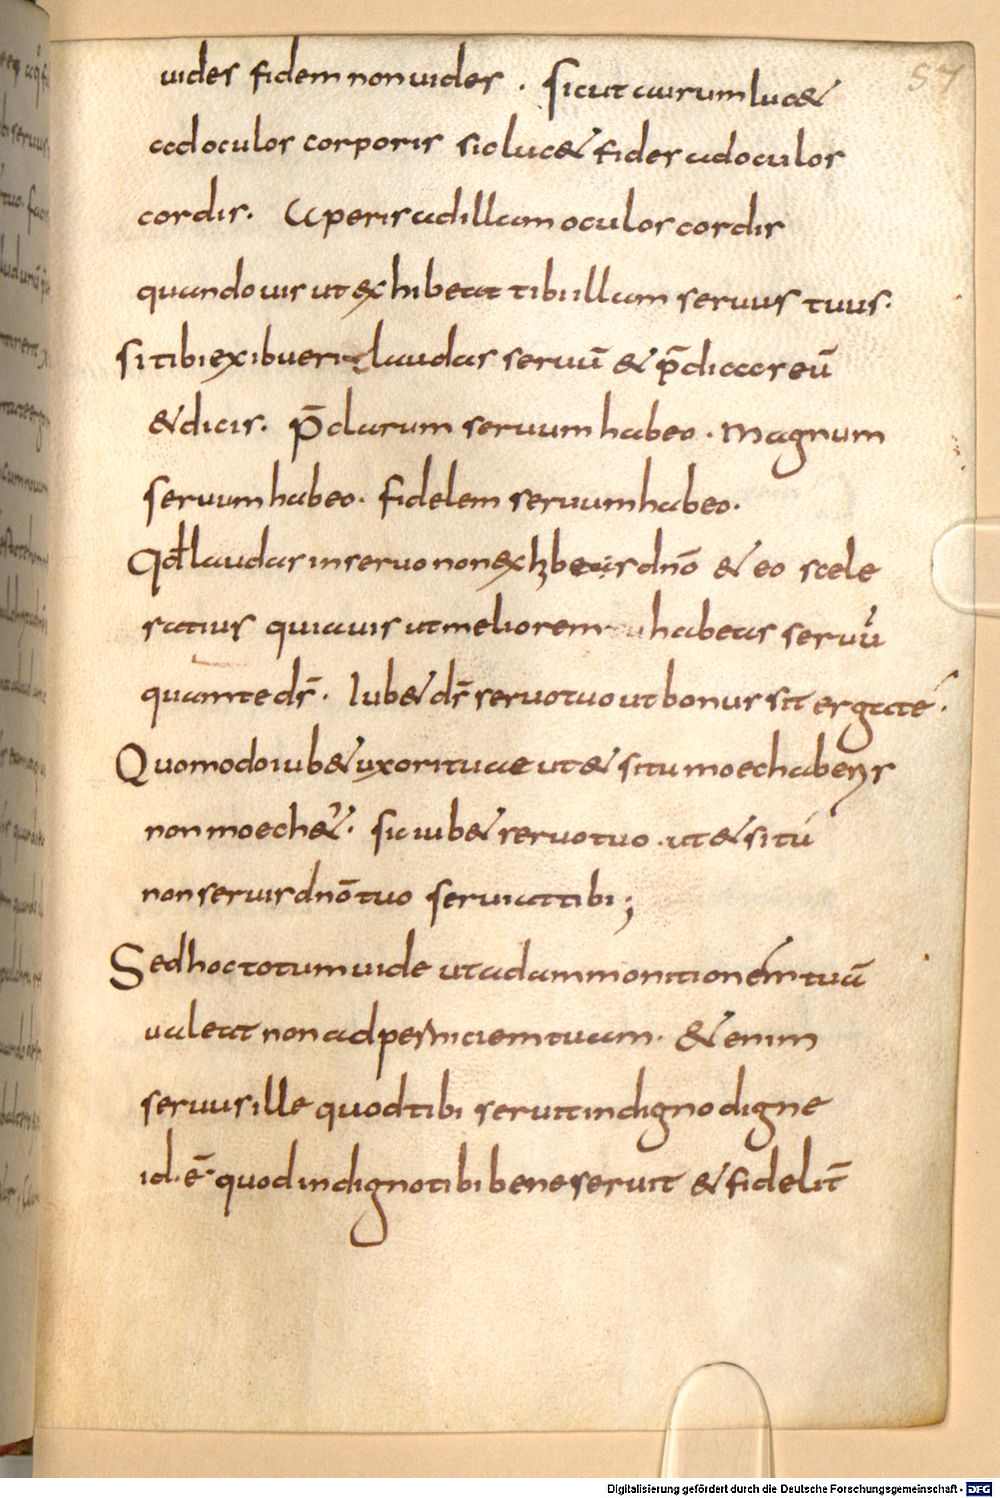 57
uides fidem non uides . Sicut aurum luc&
ad oculos corporis sic luc& fides ad oculos
cordis. Aperis ad illam oculos cordis
quando uis ut exhibeat tibi illam seruus tuus.
si tibi exibueri laudas seruū & p̄dicas eū
& dicis. p̄clarum seruum habeo . magnum
seruum habeo . fidelem seruum habeo .
Qd laudas in seruo non exhibeas dn̄o & eo scele
satius quia uis ut meliorem habeas seruū
quam te ds̄ . Iub& ds̄ seruo tuo ut bonus sit erga te .
Quomodo iub& uxori tuae ut & si tu moechaberis
non moech&. sic iub& seruo tuo . ut & si tu
non seruis dn̄o tuo seruiat tibi ;
Sed hoc totum uide ut ad ammonitionem tuā
ualeat non ad perniciem tuam . & enim
seruus ille quod tibi seruit indigno digne
id . ē . quod indigno tibi bene seruit & fidelit̄
Digitalisierung gefördert durch die Deutsche Forschungsgemeinschaft - DFG